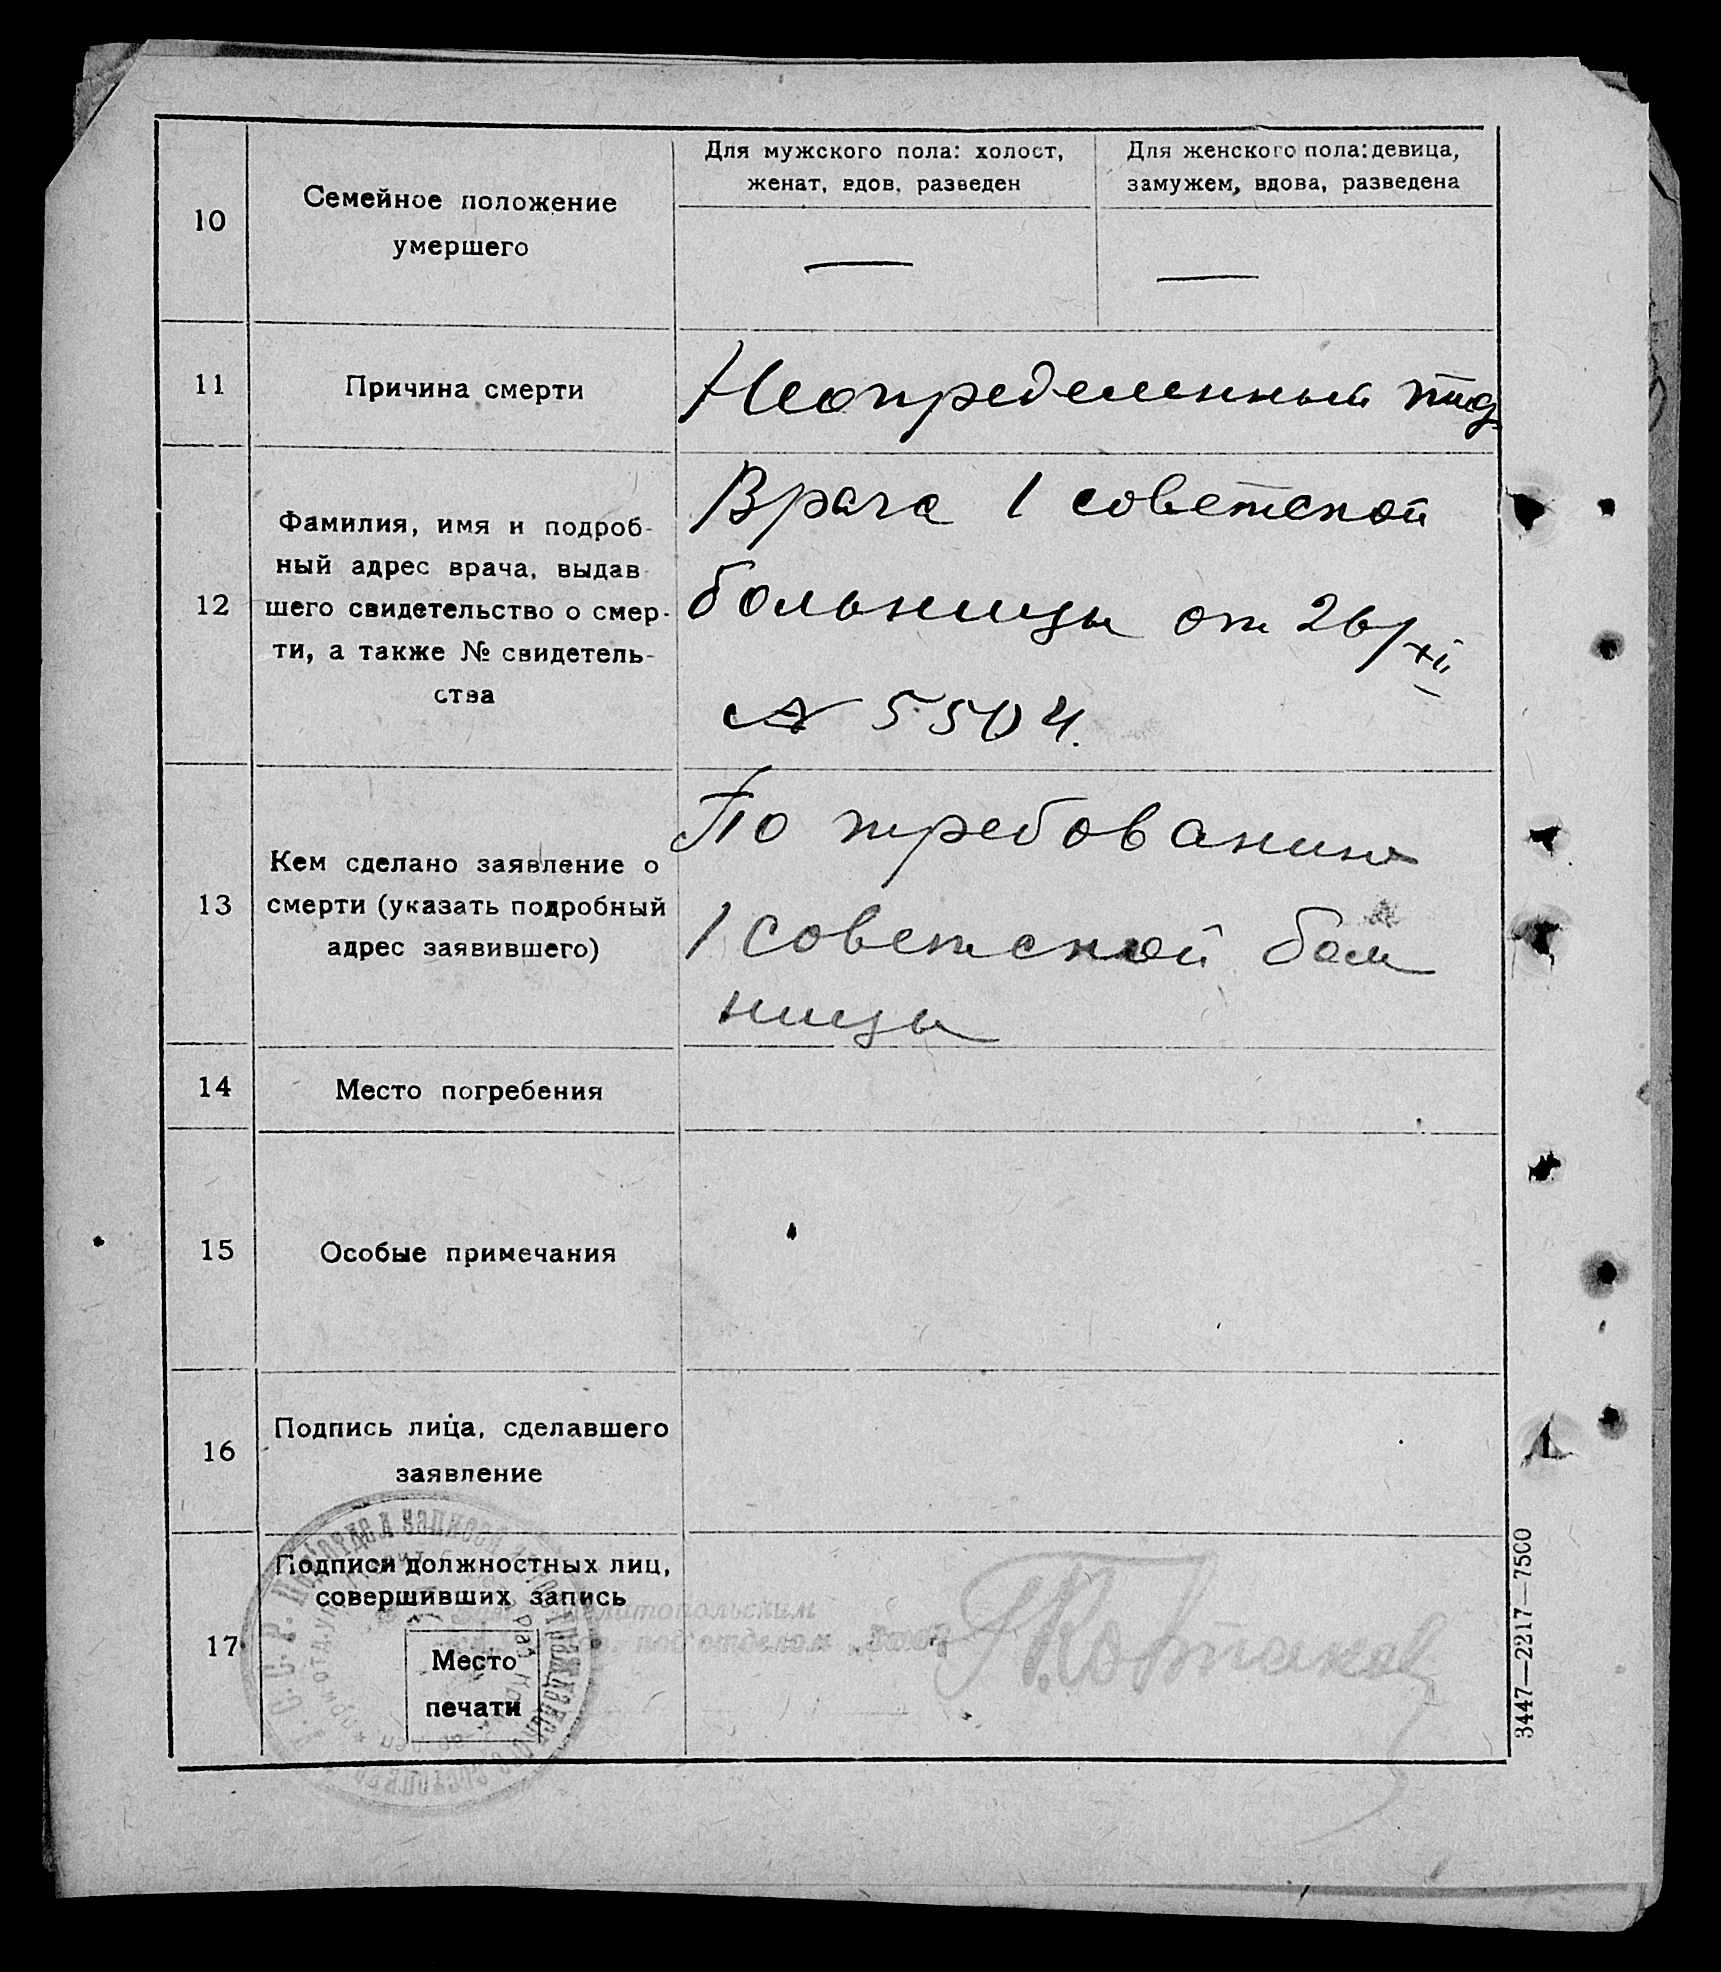 Для мужского пола: холост,
женат, вдов, разведен
Для женского пола: девица,
замужем, вдова, разведена
10
Семейное положение
умершего
—
—
11
Причина смерти
Неопределенный
12
Фамилия, имя и подроб-
ный адрес врача, выдав-
шего свидетельство о смер-
ти, а также № свидетель-
ства
Врача 1 советской
больницы от 26/XII
№ 5504.
13
Кем сделано заявление о
смерти (указать подробный
адрес заявившего)
По требованию
1 советской боль
ницы
14
Место погребения
15
Особые примечания
16
Подпись лица, сделавшего
заявление
17
Подписи должностных лиц,
совершивших запись
Место
печати
3447—2217—7500